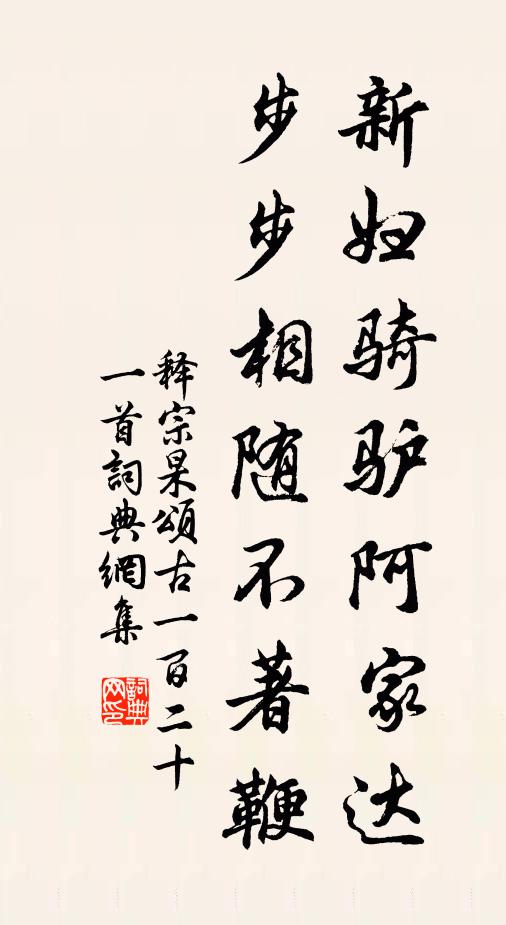 新妇骑驴阿家达
步步相随不著鞭
释宗杲頌古一百二十
一首詞典網集
詞典
网印